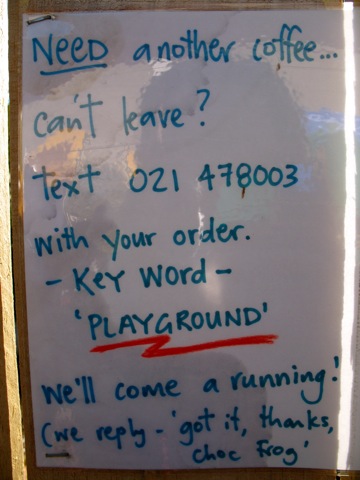 NEED another coffee...
can't leave?
text 021 478003
with your order.
- KEY WORD -
'PLAYGROUND'
we'll come a running!
(we reply - 'got it, thanks,
choc frog'